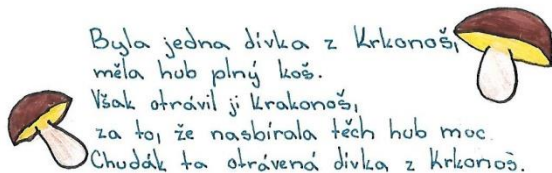 Byla jedna dívka z Krkonoš,
měla hub plný koš.
Však otrávil ji Krakonoš,
za to, že nasbírala těch hub moc.
Chudák ta otrávená dívka z Krkonoš.